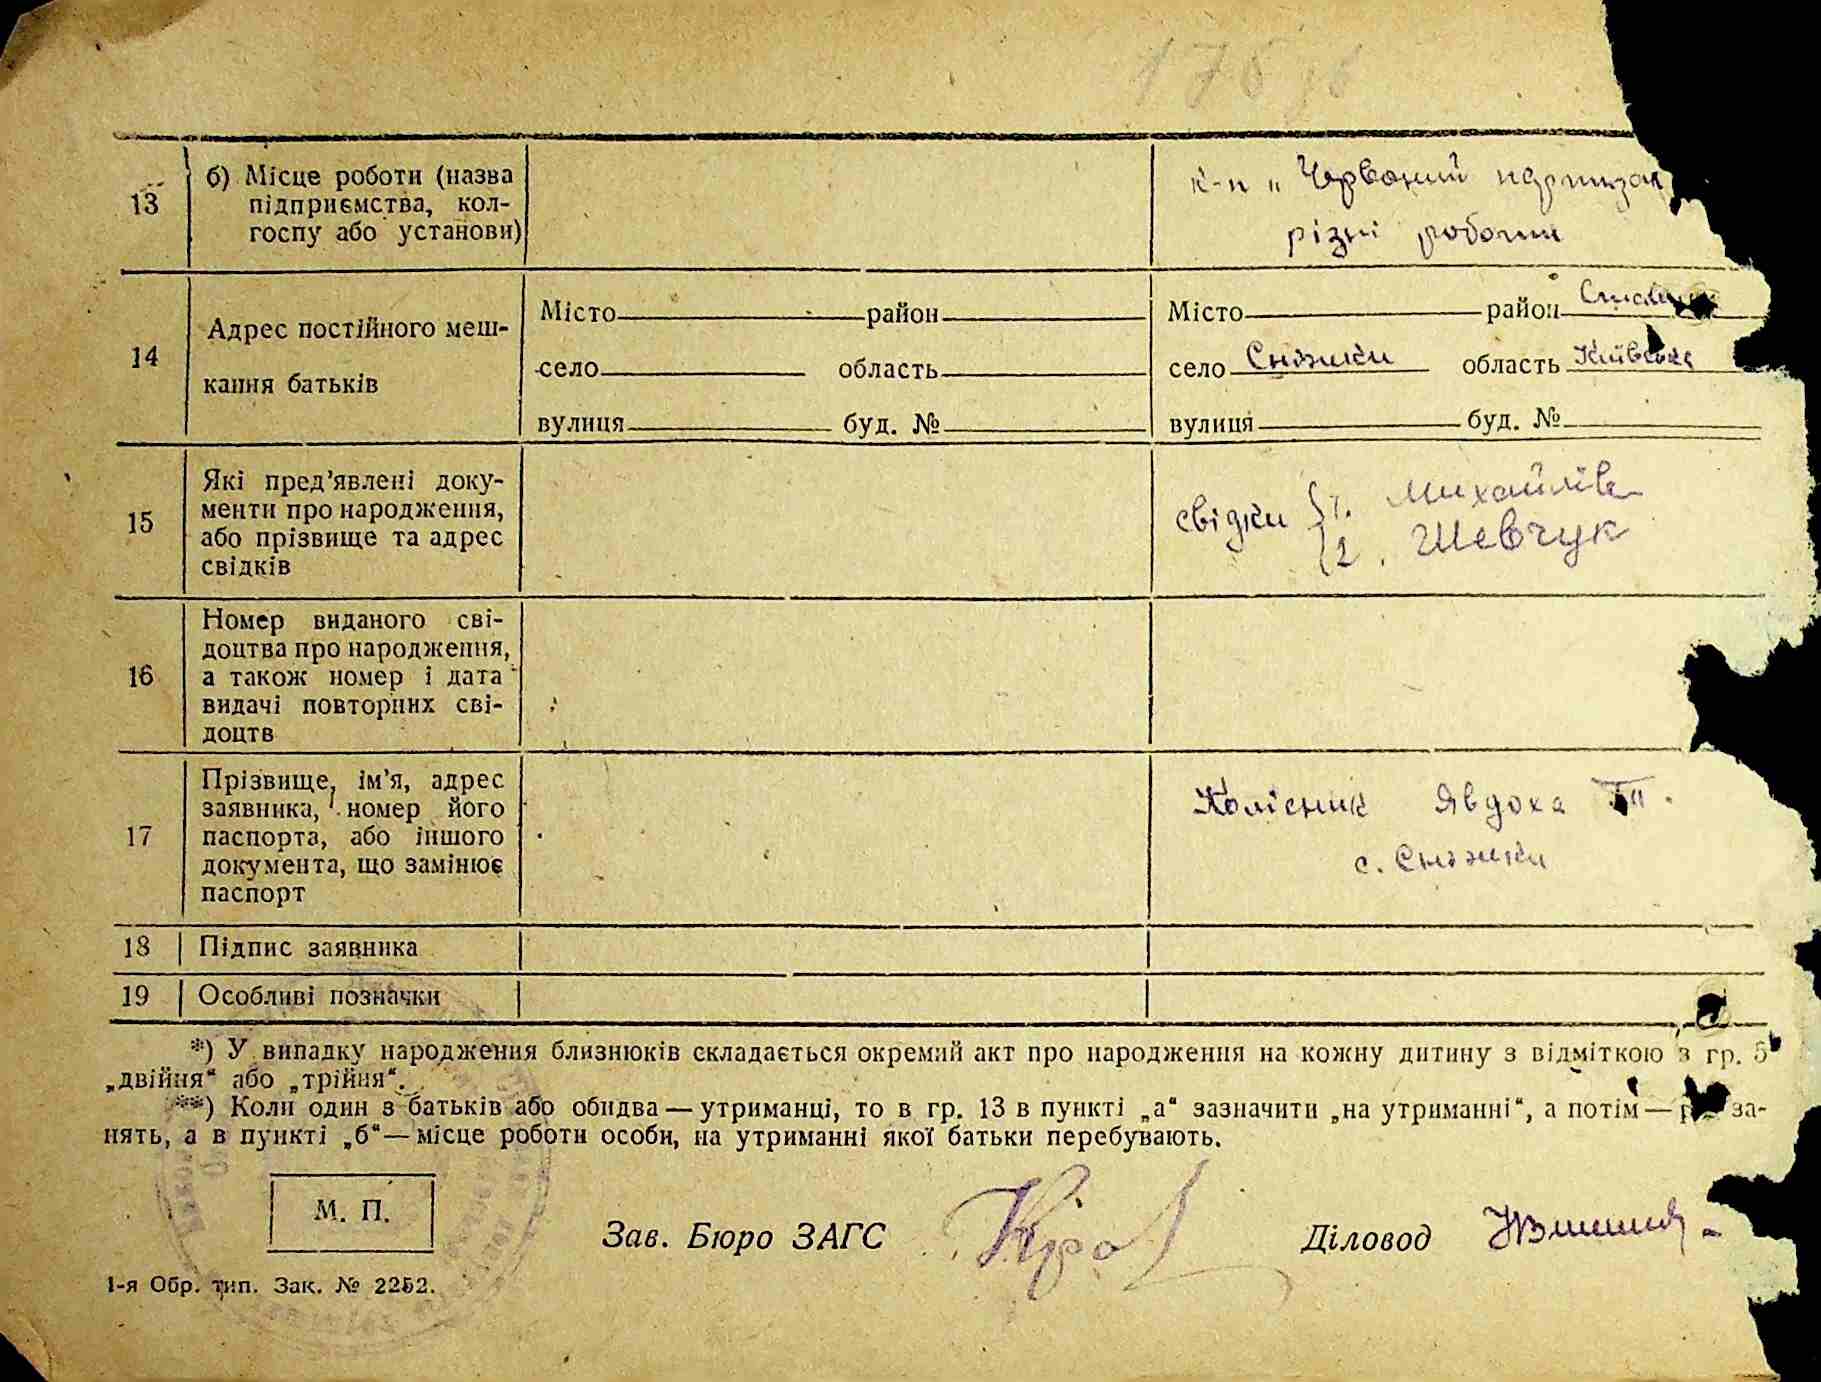 175 зв
13
б) Місце роботи (назва
підприємства, кол-
госпу або установи)
к-п „Червоний партизан
різні роботи
14
Адрес постійного меш-
кання батьків
Місто район
село область
вулиця буд. №
Місто район
село Сніжки область Київська
вулиця буд. №
15
Які пред'явлені доку-
менти про народження,
або прізвище та адрес
свідків
свідки 1. Михайлів
2. Шевчук
16
Номер виданого сві-
доцтва про народження,
а також номер і дата
видачі повторних сві-
доцтв
17
Прізвище, ім'я, адрес
заявника, номер його
паспорта, або іншого
документа, що замінює
паспорт
Колісник Явдоха
с. Сніжки
18 Підпис заявника
19 Особливі позначки
*) У випадку народження близнюків складається окремий акт про народження на кожну дитину з відміткою з гр. 5
„двійня“ або „трійня“.
**) Коли один з батьків або обидва — утриманці, то в гр. 13 в пункті „а“ зазначити „на утриманні“, а потім — за-
нять, а в пункті „б“ — місце роботи особи, на утриманні якої батьки перебувають.
М. П.
Зав. Бюро ЗАГС
Діловод
1-я Обр. тип. Зак. № 2252.